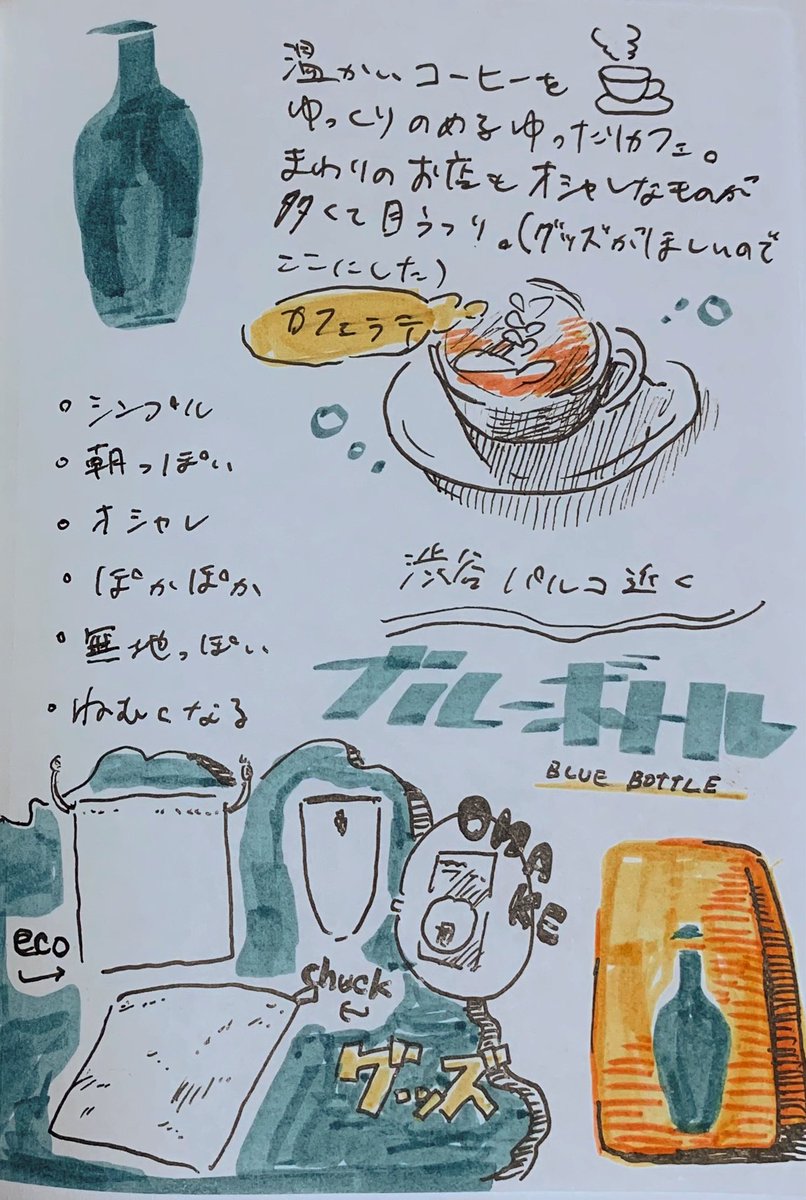 温かいコーヒーを
ゆっくりのめるゆったりカフェ。
まわりのお店もオシャレなものが
多くて目うつり。(グッズがほしいので
ここにした)
カフェラテ
・シンプル
・朝っぽい
・オシャレ
・ぽかぽか
・無地っぽい
・ねむくなる
渋谷パルコ近く
ブルーボトル
BLUE BOTTLE
OMAKE
eco
chuck
グッズ